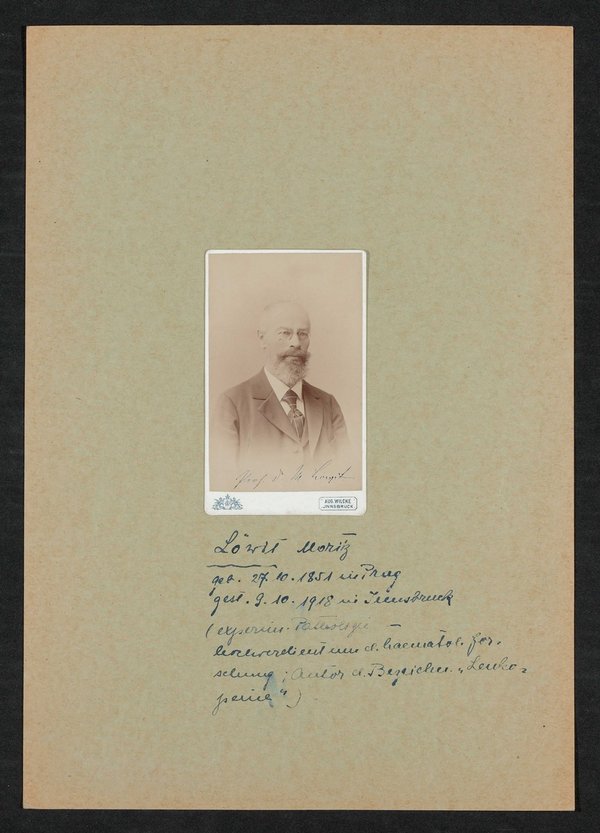 Prof. Dr. M. Löwit
AUG. WILCKE
INNSBRUCK
Löwit Moritz
geb. 27. 10. 1851 in Prag
gest. 9. 10. 1918 in Innsbruck
(experim. Pathologie
hochverdient um d. haematol. For-
schung; Autor d. Bezeichn. „Leuko-
penie“)